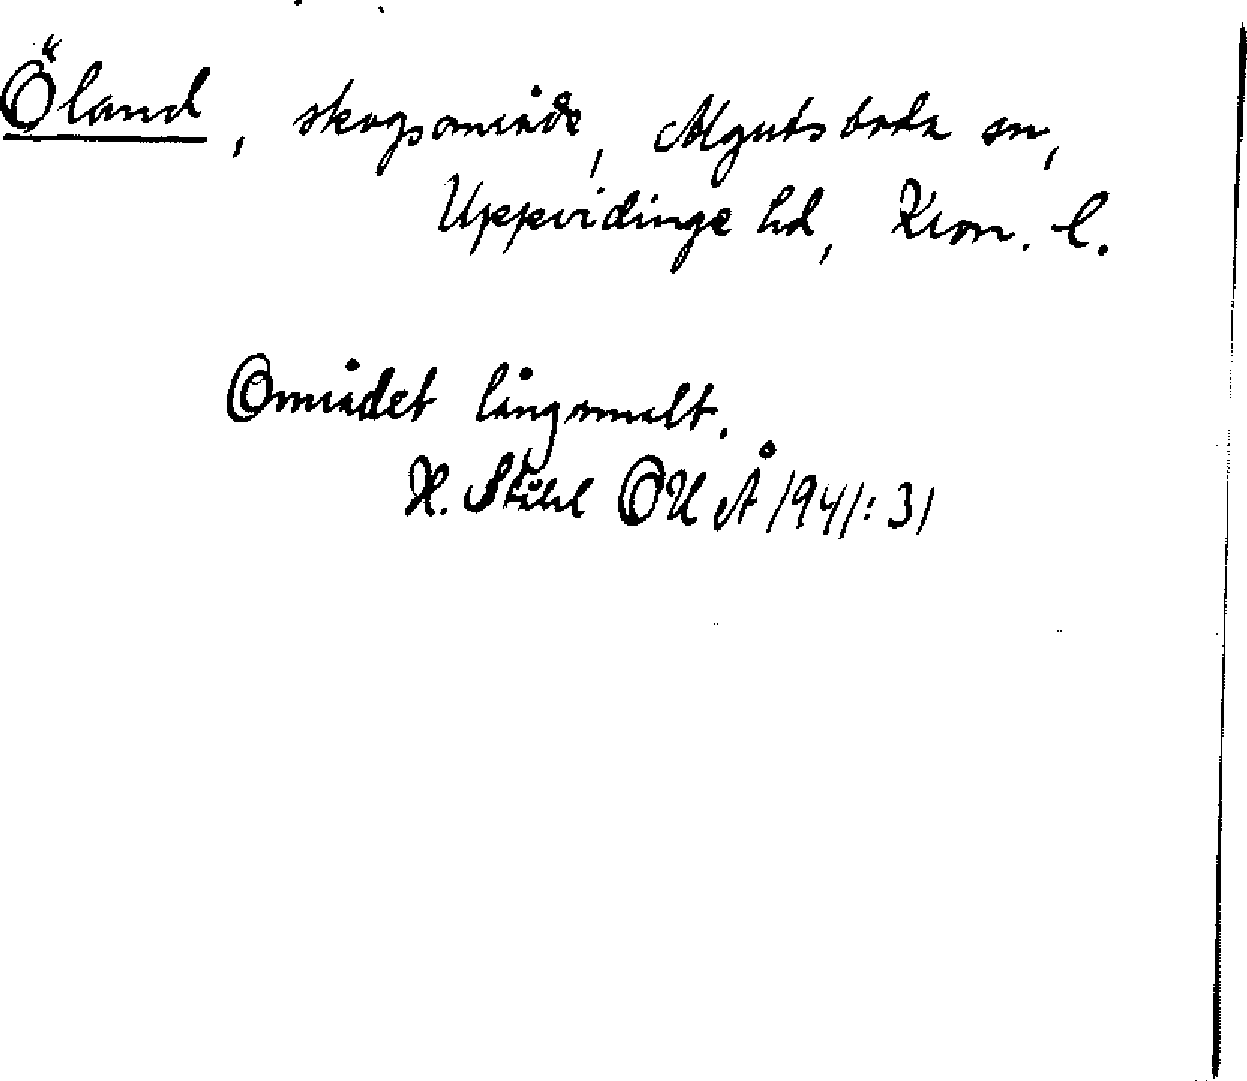 Öland, skogsområde, Algutsboda sn,
Uppvidinge hd, Kron. l.
Området långsmalt.
H. Ståhl OUÅ 1941: 31